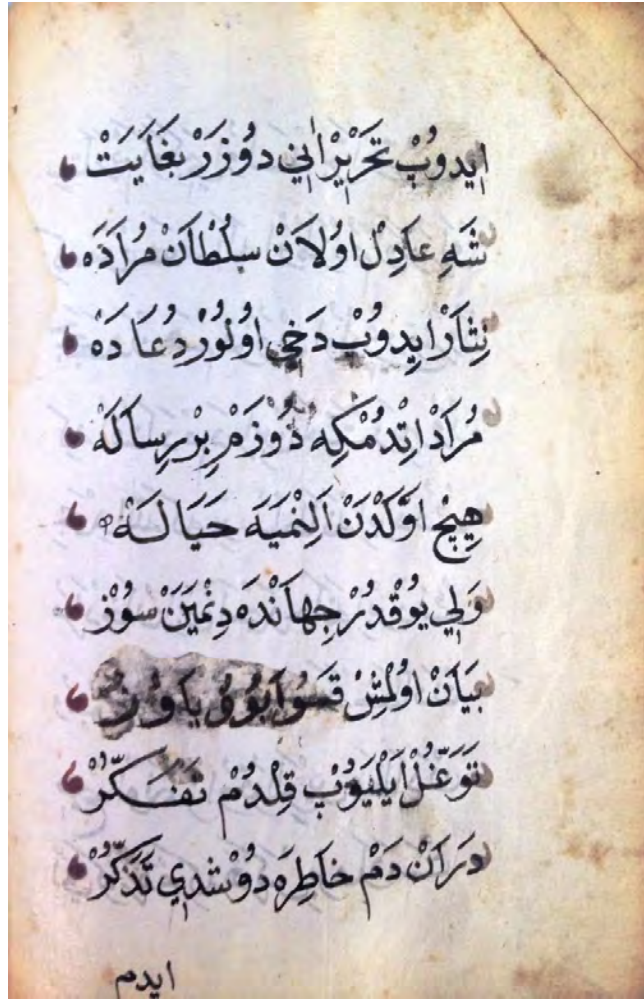 ايدوُبْ تحَرْيِرْ اٰنِي دوُزَرْ بغَايَتْ
شَهِ عاَدِلْ اوُلاَنْ سلُطاَنْ مُرَادَه
نِثاَرْ ايِدوُبْ دَخِي اوُلوُرْ دُعَا دَهْ
مُرَادْ اتِدْمُكِه دُوْزَمْ بِرْ رِسالَهْ
هِيْچ اوَّلدَنْ اَلِنْميَه حَيَالَهْ
وَلِي يوُقدُرْ جِهاَنْدَه دِنْميَنْ سوُزْ
بيَاَنْ اوُلمْشِ
توَغّلْ ايَليَوُبْ قِلْدُمْ تفَكّرُْ
دَرَانْ دَمْ خاَطِرَه دوُشدِي تَذَكّرُْ
ايدم